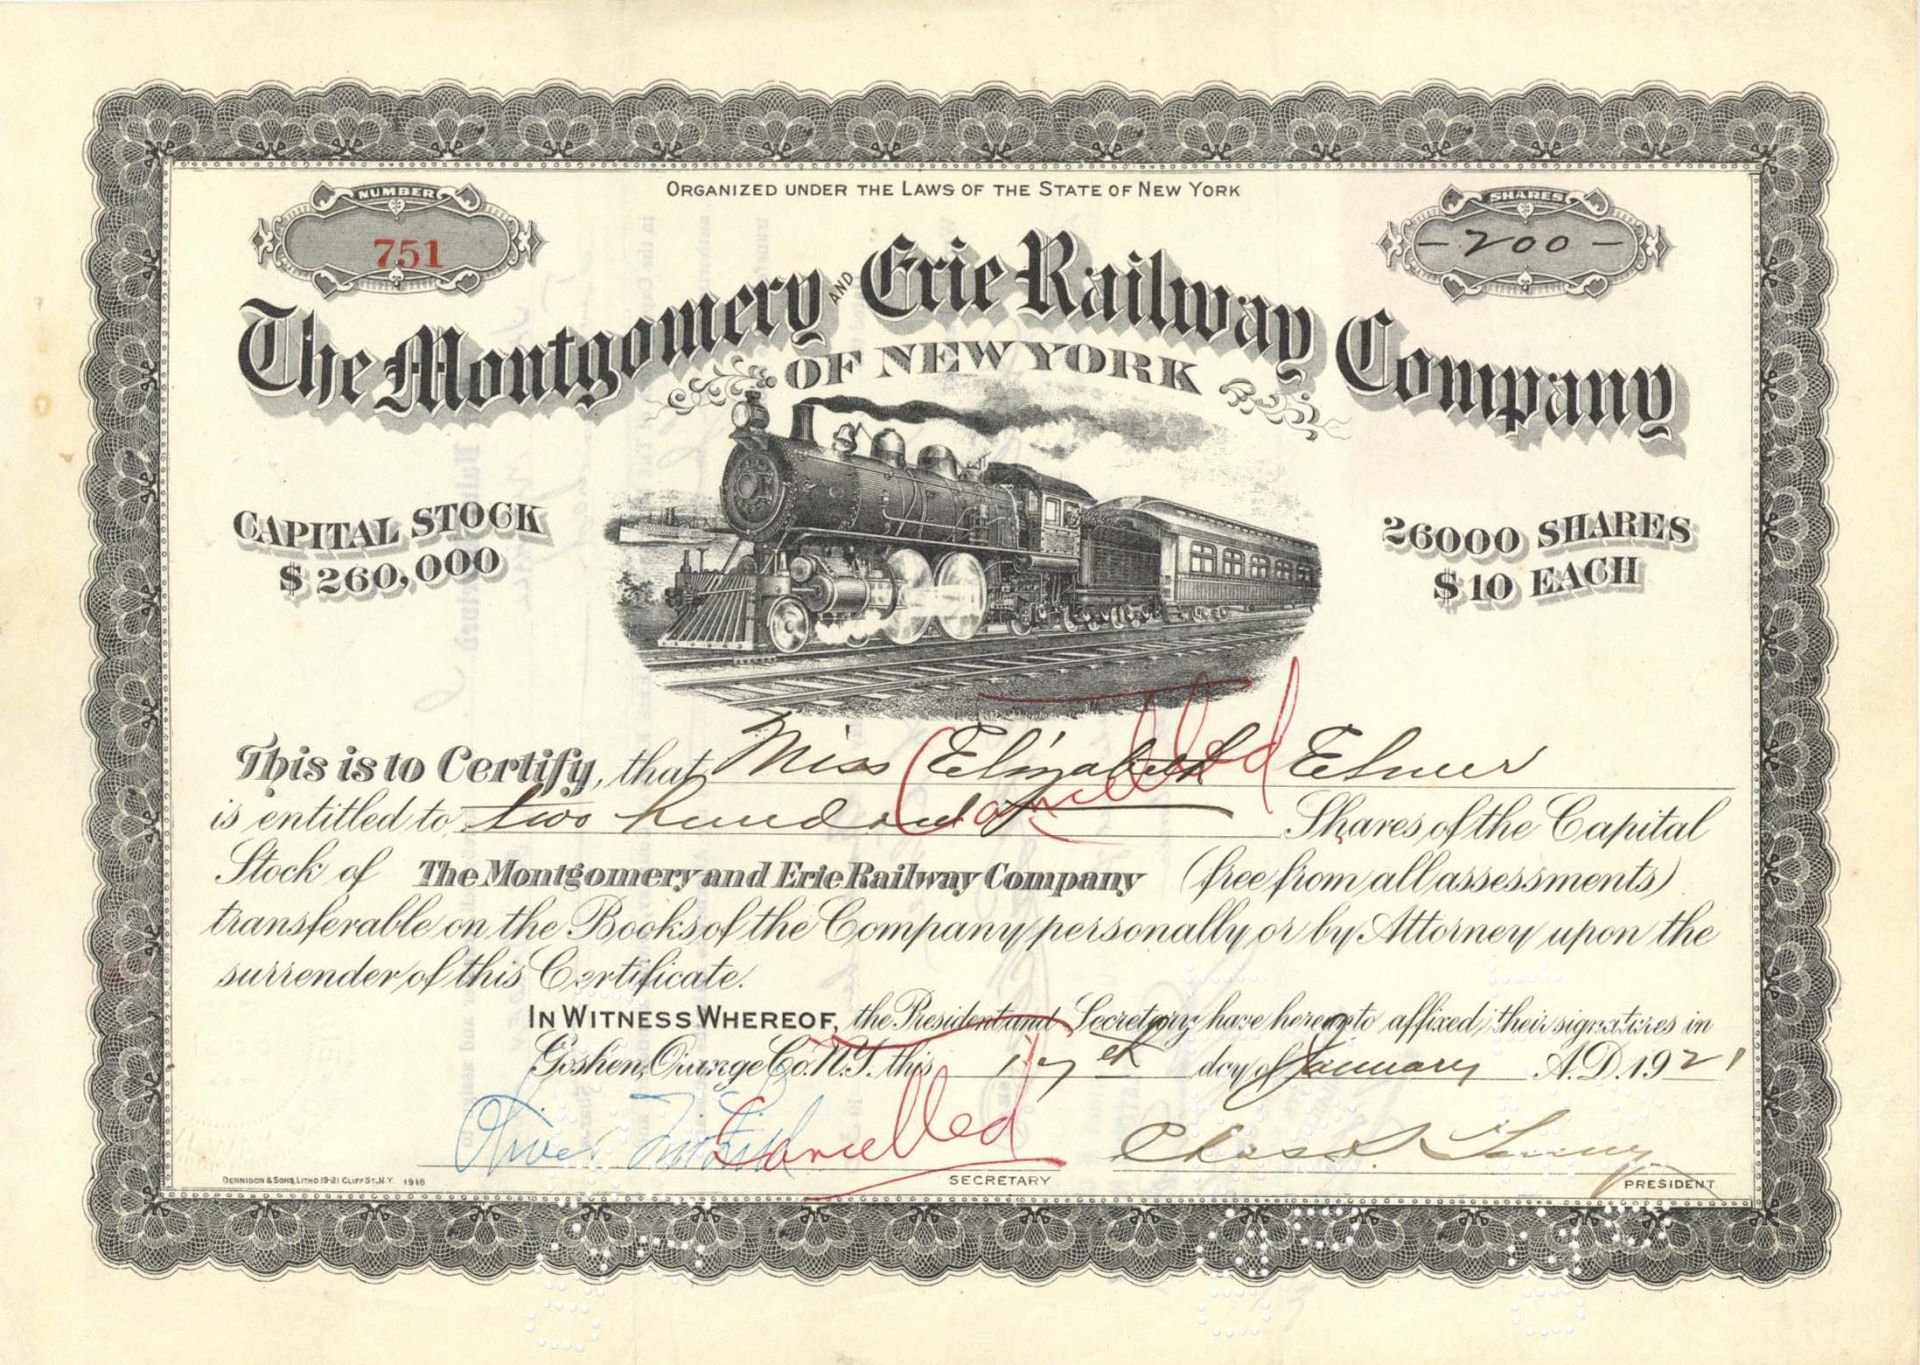 ORGANIZED UNDER THE LAWS OF THE STATE OF NEW YORK
NUMBER
751
SHARES
-200-
The Montgomery AND Erie Railway Company
OF NEW YORK
CAPITAL STOCK
$260,000
26000 SHARES
$10 EACH
This is to Certify, that Miss Elizabeth Elmer
Cancelled
is entitled to two hundred Shares of the Capital
Stock of The Montgomery and Erie Railway Company (free from all assessments)
transferable on the Books of the Company personally or by Attorney upon the
surrender of this Certificate.
IN WITNESS WHEREOF, the President and Secretary have hereunto affixed their signatures in
Goshen, Orange Co. N.Y. this 17th day of January A.D. 1921
Cancelled
Chas. S.
SECRETARY
PRESIDENT
DENNISON & SONS, LITHO. 19-21 CLIFF ST., N.Y. 1918